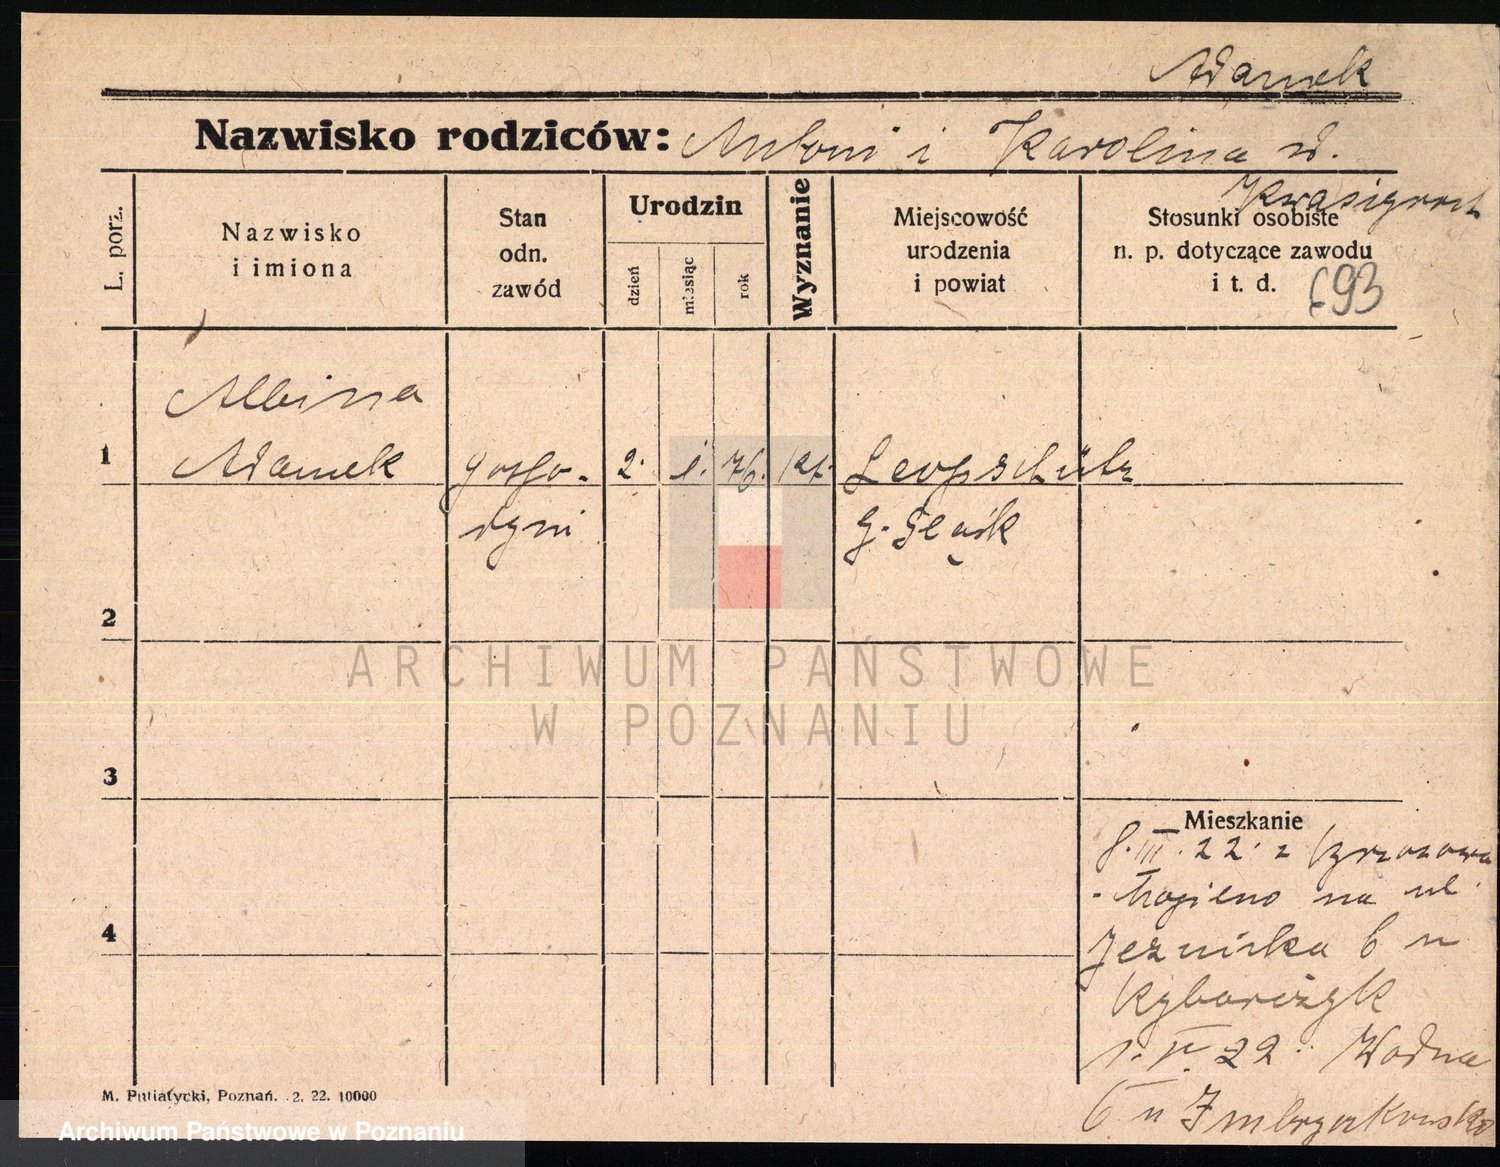 Adamek
Nazwisko rodziców: Antoni i Karolina
L. porz.
Nazwisko
i imiona
Stan
odn.
zawód
Urodzin
dzień
miesiąc
rok
Wyznanie
Miejscowość
urodzenia
i powiat
Stosunki osobiste
n. p. dotyczące zawodu
i t. d.
693
1
Albina
Adamek
gospo-
dyni
2. 1. 76. kt.
Leopschütz
g. Śląsk
2
3
4
Mieszkanie
8. III. 22. z
na ul.
Jeznicka 6 u
1. V. 22. Wodna
6 u
ARCHIWUM PAŃSTWOWE
W POZNANIU
M. Putiatycki, Poznań. 2. 22. 10000
Archiwum Państwowe w Poznaniu